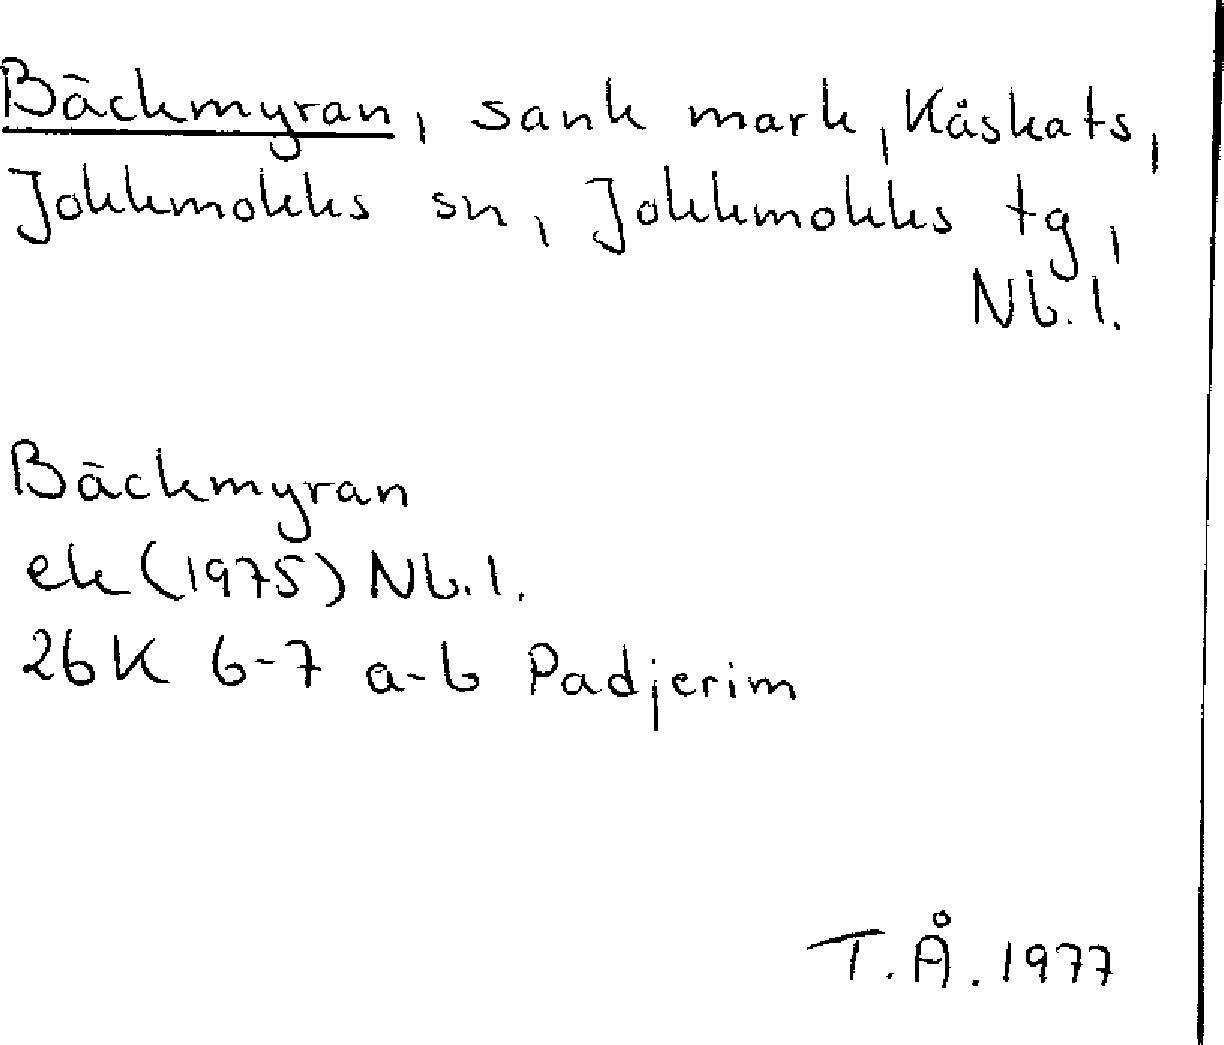 Bäckmyran, sank mark, Kåskats,
Jokkmokks sn, Jokkmokks tg,
Nb.l.
Bäckmyran
ek (1975) Nb.l.
26K 6-7 a-b Padjerim
T.Å. 1977